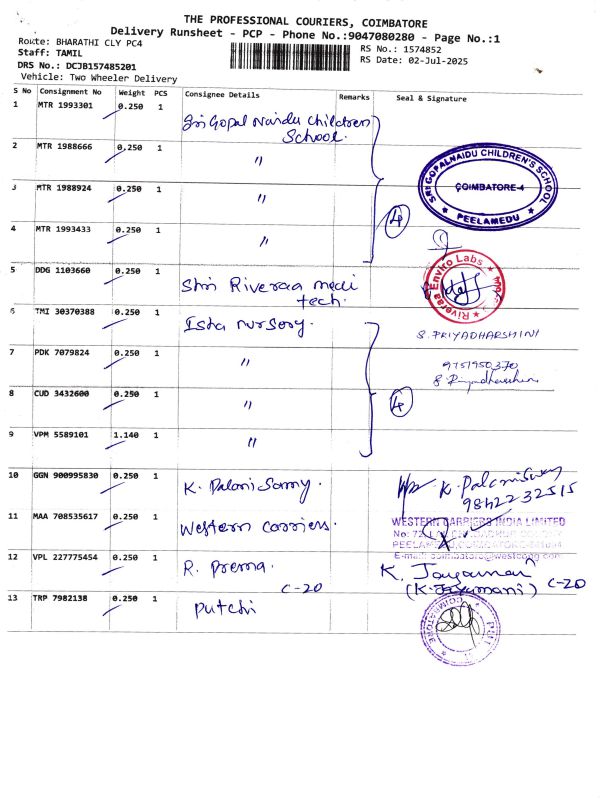 THE PROFESSIONAL COURIERS, COIMBATORE
Delivery Runsheet - PCP - Phone No.:9047080280 - Page No.:1
Route: BHARATHI CLY PC4
RS No.: 1574852
Staff: TAMIL
RS Date: 02-Jul-2025
DRS No.: DCJB157485201
Vehicle: Two Wheeler Delivery
S No Consignment No Weight PCS Consignee Details Remarks Seal & Signature
1 MTR 1993301 0.250 1 Sri Gopal Naidu Children
School.
2 MTR 1988666 0.250 1 "
SRI GOPALNAIDU CHILDREN'S SCHOOL
COIMBATORE-4
★ PEELAMEDU ★
3 MTR 1988924 0.250 1 "
4
4 MTR 1993433 0.250 1 "
5 DDG 1103660 0.250 1 Shri Riveraa medi
tech.
Riveraa Enviro Labs
6 TMI 30370388 0.250 1 Isha nursory.
S. PRIYADHARSHINI
7 PDK 7079824 0.250 1 "
9751950370
S. Priyadharshini
8 CUD 3432600 0.250 1 "
4
9 VPM 5589101 1.140 1 "
10 GGN 900995830 0.250 1 K. Palanisamy.
K. Palanisamy
9842232515
11 MAA 708535617 0.250 1 Western carriers.
WESTERN CARRIERS INDIA LIMITED
No: 72,
PEELAMEDU, COIMBATORE-641004
E-mail: coimbatore@westcong.com
12 VPL 227775454 0.250 1 R. Prema.
C-20
K. Jayamani
(K. Jayamani) C-20
13 TRP 7982138 0.250 1 Putchi
COIMBATORE